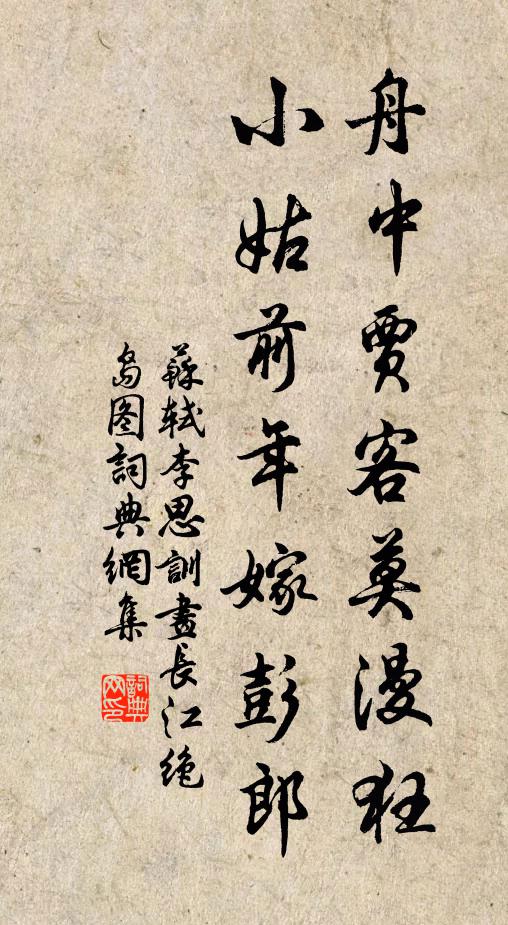 舟中賈客莫漫狂
小姑前年嫁彭郎
蘇軾李思訓畫長江絶
島图詞典網集
詞典
网印